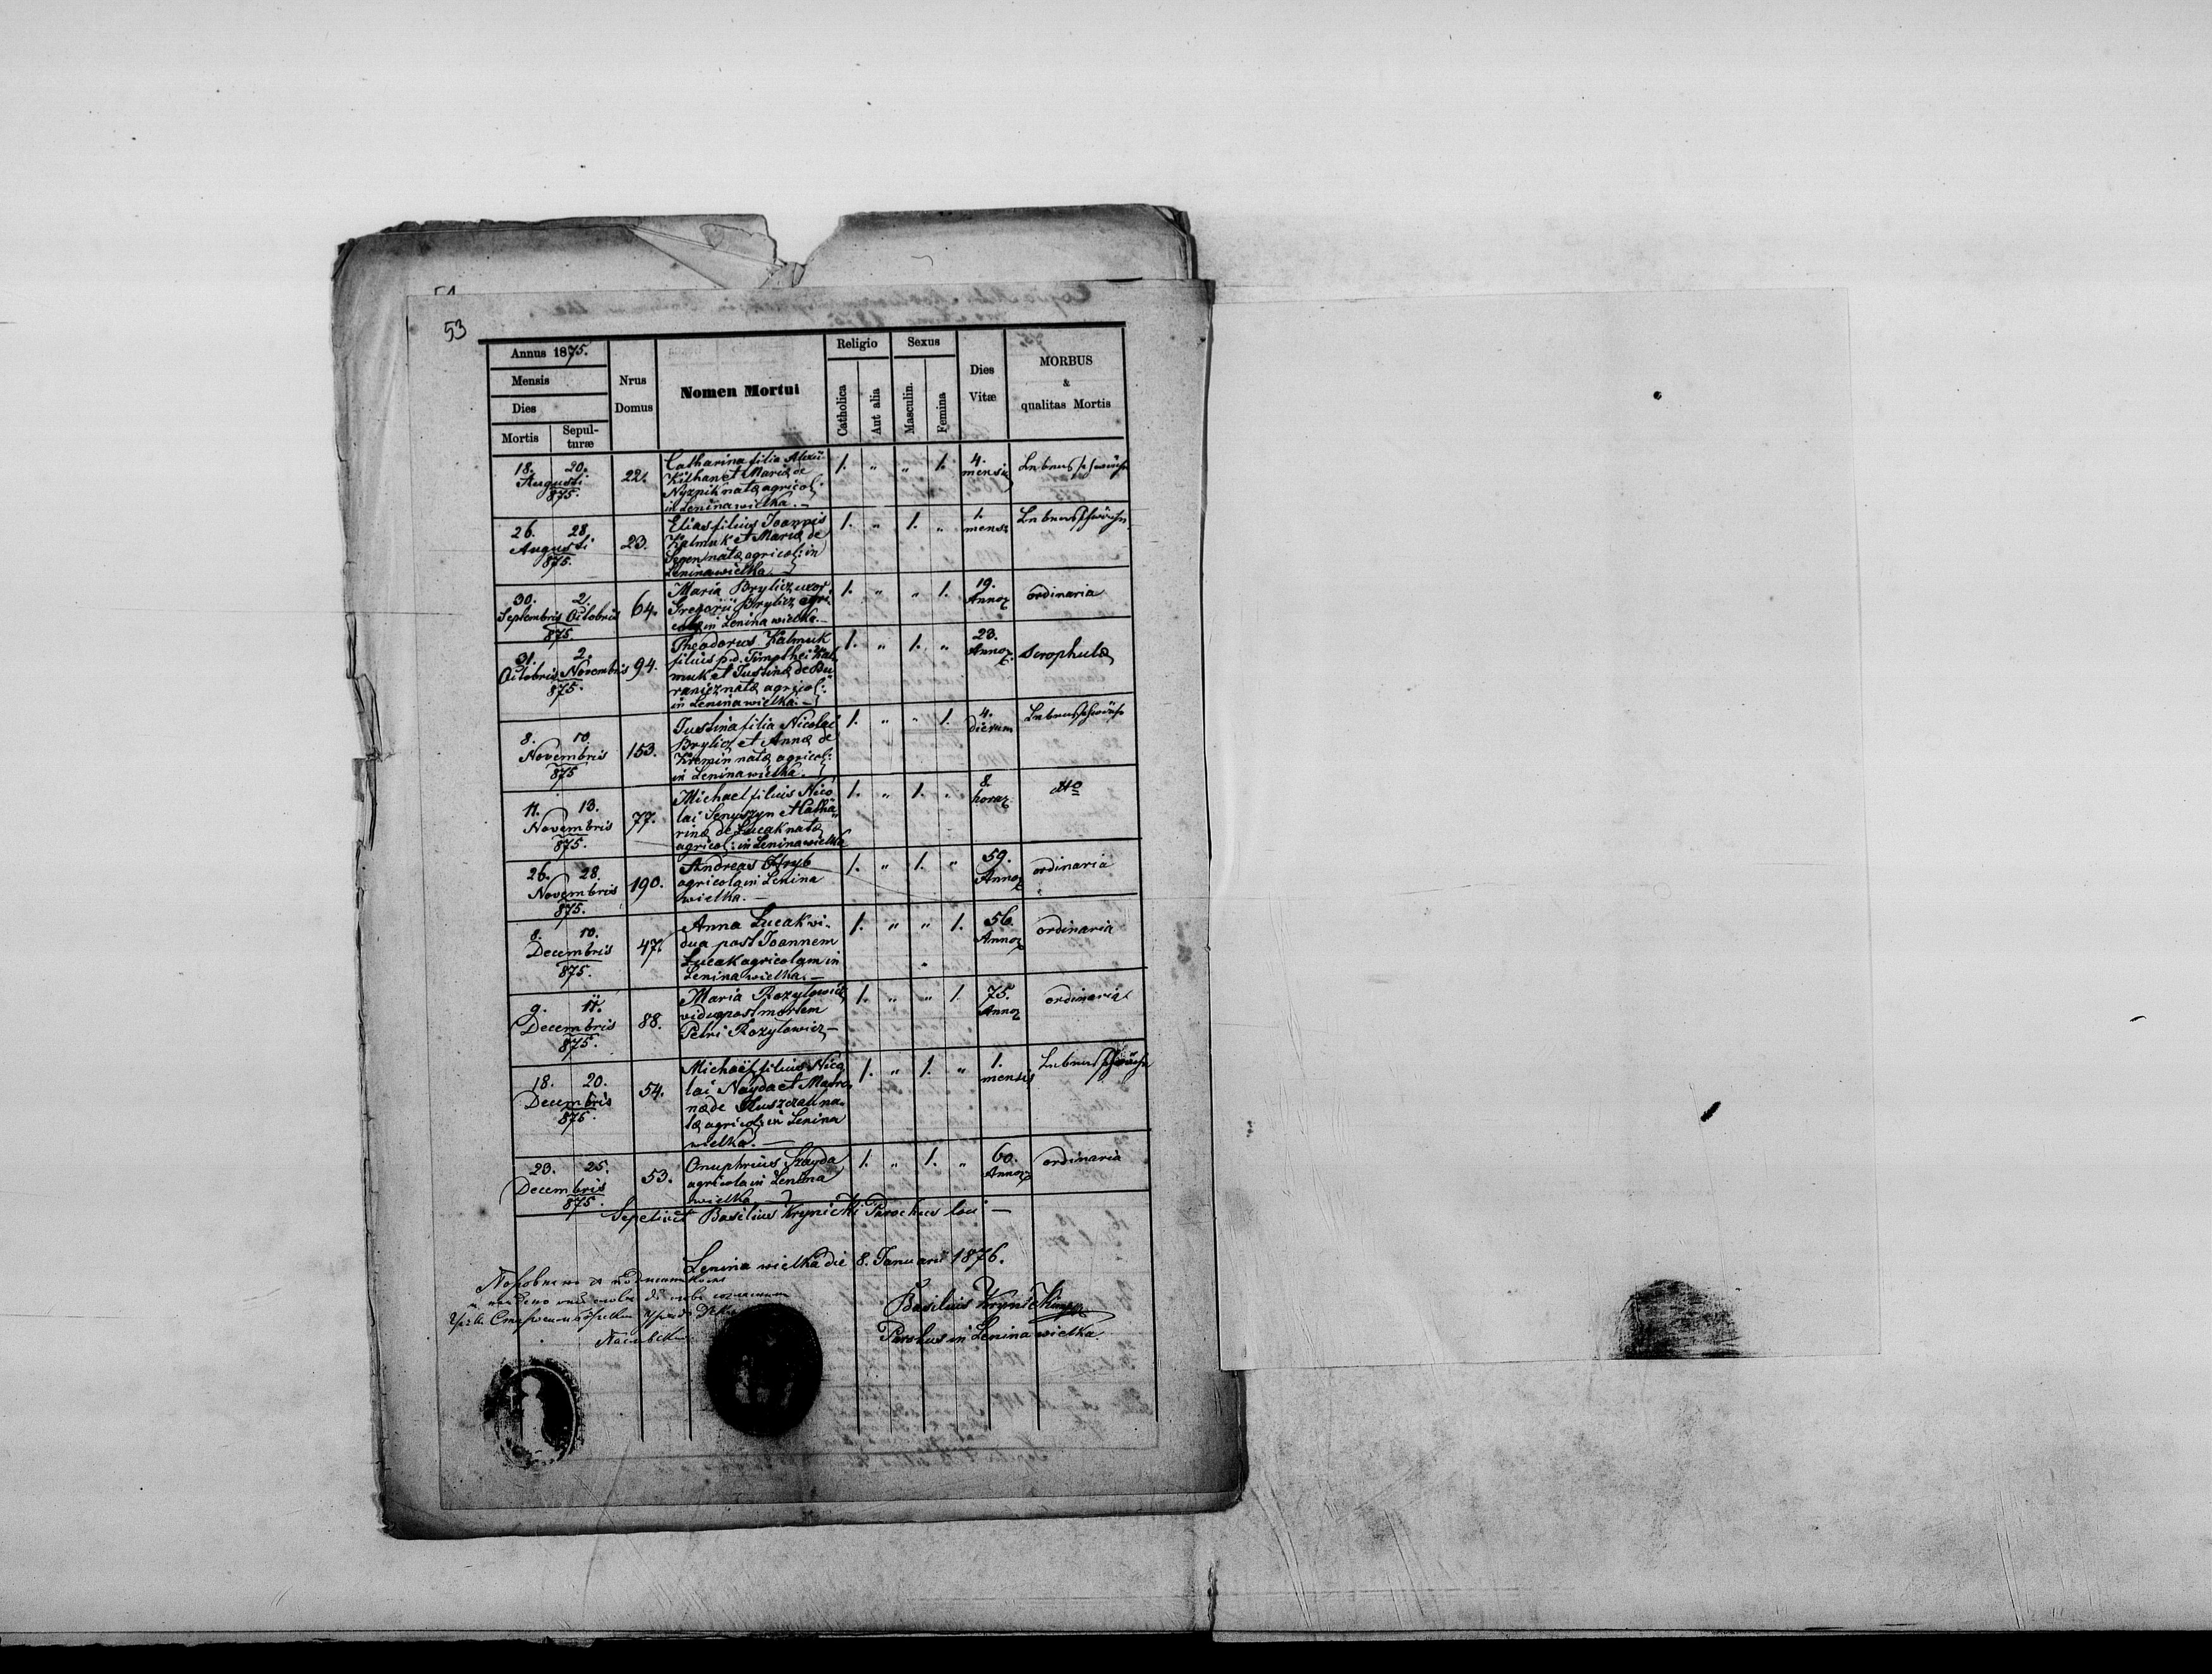 53
Annus 1875.
Mensis
Dies
Mortis
Sepul-
turæ
Nrus
Domus
Nomen Mortui
Religio
Catholica
Aut alia
Sexus
Masculin.
Femina
Dies
Vitæ
MORBUS
&
qualitas Mortis
18. 20.
Augusti
875.
22.
Catharina filia Alexii
Kithan et Maria de
Nyznik nata agricol:
in Lenina wielka.—
1. „ „ 1.
4.
mensiz
Lebensschwäche
26. 28.
Augusti
875.
23.
Elias filius Joannis
Kalmuk et Maria de
Segen nata agricol: in
Lenina wielka.—
1. „ 1. „
1.
mensz
Lebensschwäche
30. 2.
Septembris Octobris
875
64.
Maria Brylicz uxor
Gregorii Brylicz agri
cola in Lenina wielka.—
1. „ „ 1.
19.
Annoz
ordinaria
31. 2.
Octobris Novembris
875.
94.
Theodorus Kalmuk
filius p.d. Timothei Kal
muk et Justina de Bu
ranicz nata agricol:
in Lenina wielka.—
1. „ 1. „
23.
Annoz.
Scrophula
8. 10.
Novembris
875
153.
Justina filia Nicolai
Brylicz et Anna de
Kremin nata agricol:
in Lenina wielka.
1. „ „ 1.
4.
dierum
Lebensschwäche
11. 13.
Novembris
875.
77.
Michael filius Nico
lai Senyszyn et Catha
rina de Lucak nata
agricol: in Lenina wielka
1. „ 1. „
8.
horaz.
dtto
26. 28.
Novembris
875.
190.
Andreas Hryb
agricola in Lenina
wielka.—
1. „ 1. „
59.
Annoz
ordinaria
8. 10.
Decembris
875.
47.
Anna Lucak vi-
dua post Joannem
Lucak agricolam in
Lenina wielka.—
1. „ „ 1.
56.
Annoz
ordinaria
9. 11.
Decembris
875.
88.
Maria Rozylowicz
vidua post mortem
Petri Rozylowicz—
1. „ „ 1.
75.
Annoz
ordinaria
18. 20.
Decembris
875.
54.
Michaël filius Nico
lai Nayda et Mari
na de na-
ta agricol: in Lenina
wielka.—
1. „ 1. „
1.
mensis
Lebensschwäche
23. 25.
Decembris
875.
53.
Onuphrius Hayda
agricola in Lenina
wielka
1. „ 1. „
60.
Annoz
ordinaria
Sepelivit Basilius Krynicki Parochus loci —
Lenina wielka die 8. Januarii 1876.
Basilius Krynicki
Parohus in Lenina wielka.